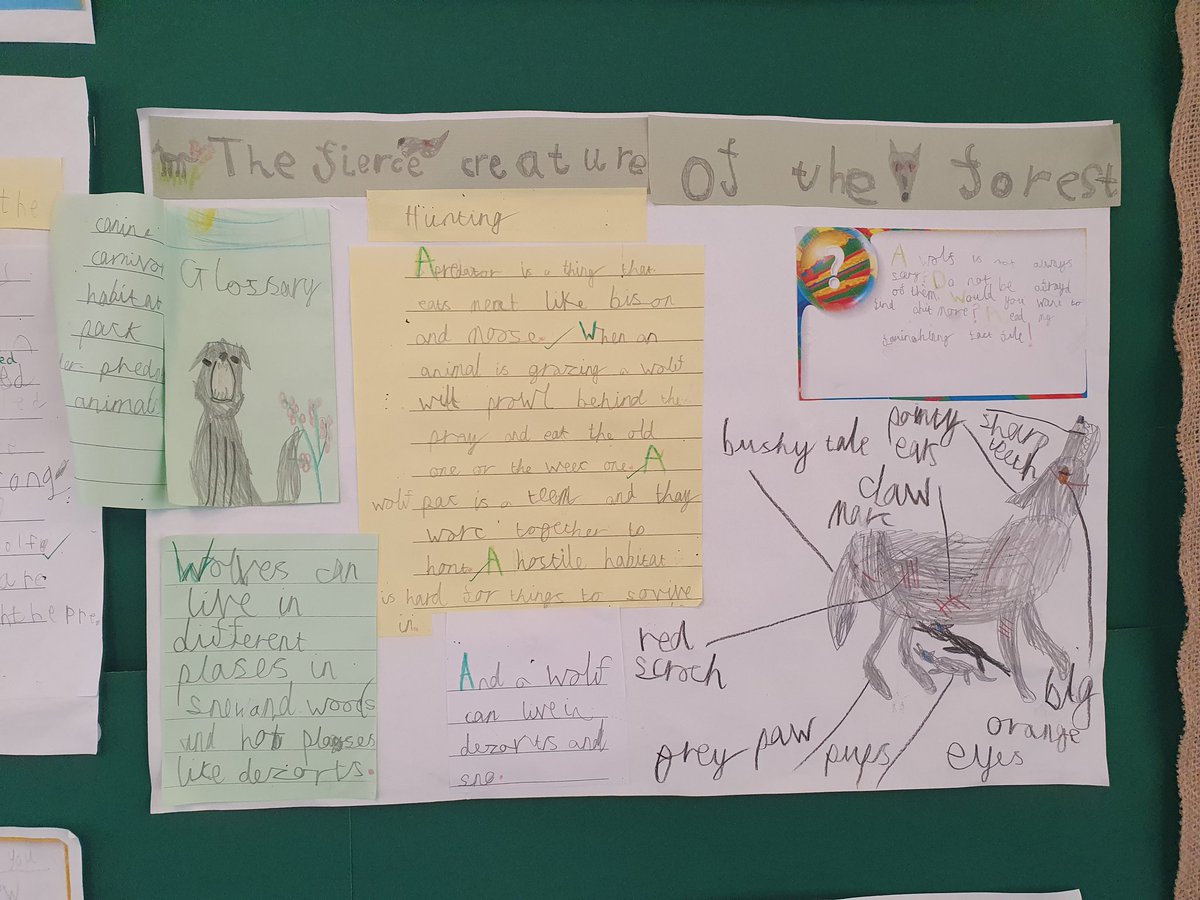 The fierce creature of the forest
canine
carnivo
habitat
pack
animal
Glossary
Hunting
Apredator is a thing that
eats meat like bison
and moose. When an
animal is grazing a wolf
will prowl behind the
pray and eat the old
one or the week one. A
wolf pac is a teem and thay
worc together to
hont. A hostile habitat
is hard for things to sovive
in.
Wolves can
live in
different
plases in
snow and woods
and hot plases
like dezorts.
And a wolf
can live in
dezorts and
sno.
A wolf is not always
scary! Do not be afrayd
of them. Would you want to
find out more? Read my
fact file!
bushy tale
pointy
ears
sharp
teeth
claw
marc
red
scroch
grey paw
pups
big
orange
eyes